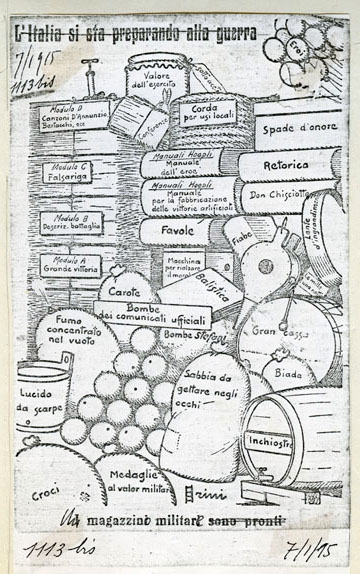 L'Italia si sta preparando alla guerra
7/1/915
1113 bis
Eroi
Valore
dell'esercito
Modulo D
Canzoni D'Annunzio,
Bertacchi, ecc
Conferenze
Corda
per usi locali
Spade d'onore
Modulo C
Falsariga
Manuali Hoepli
Manuale
dell'eroe
Retorica
Manuali Hoepli
Manuale
per la fabbricazione
delle vittorie artificiali
Don Chisciotte
Modulo B
Descriz. battaglia
Favole
Fiabe
Lente
d'ingrandimento
Modulo A
Grande vittoria
Macchina
per rialzare
il morale
Balistica
Carote
Bombe
dei comunicati ufficiali
Fumo
concentrato
nel vuoto
Bombe Stefani
Gran cassa
Biada
Lucido
da scarpe
Sabbia da
gettare negli
occhi
Inchiostro
Croci
Medaglie
al valor militare
Un magazzino militare sono pronti
1113 bis
7/1/15